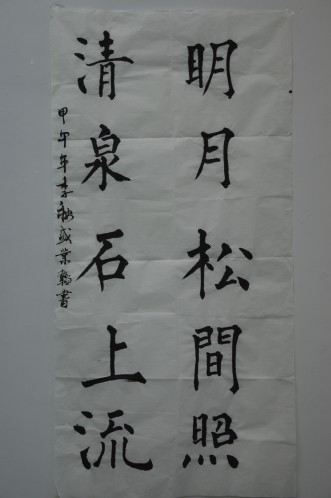 明月松間照
清泉石上流
甲午年季秋盛業翰書